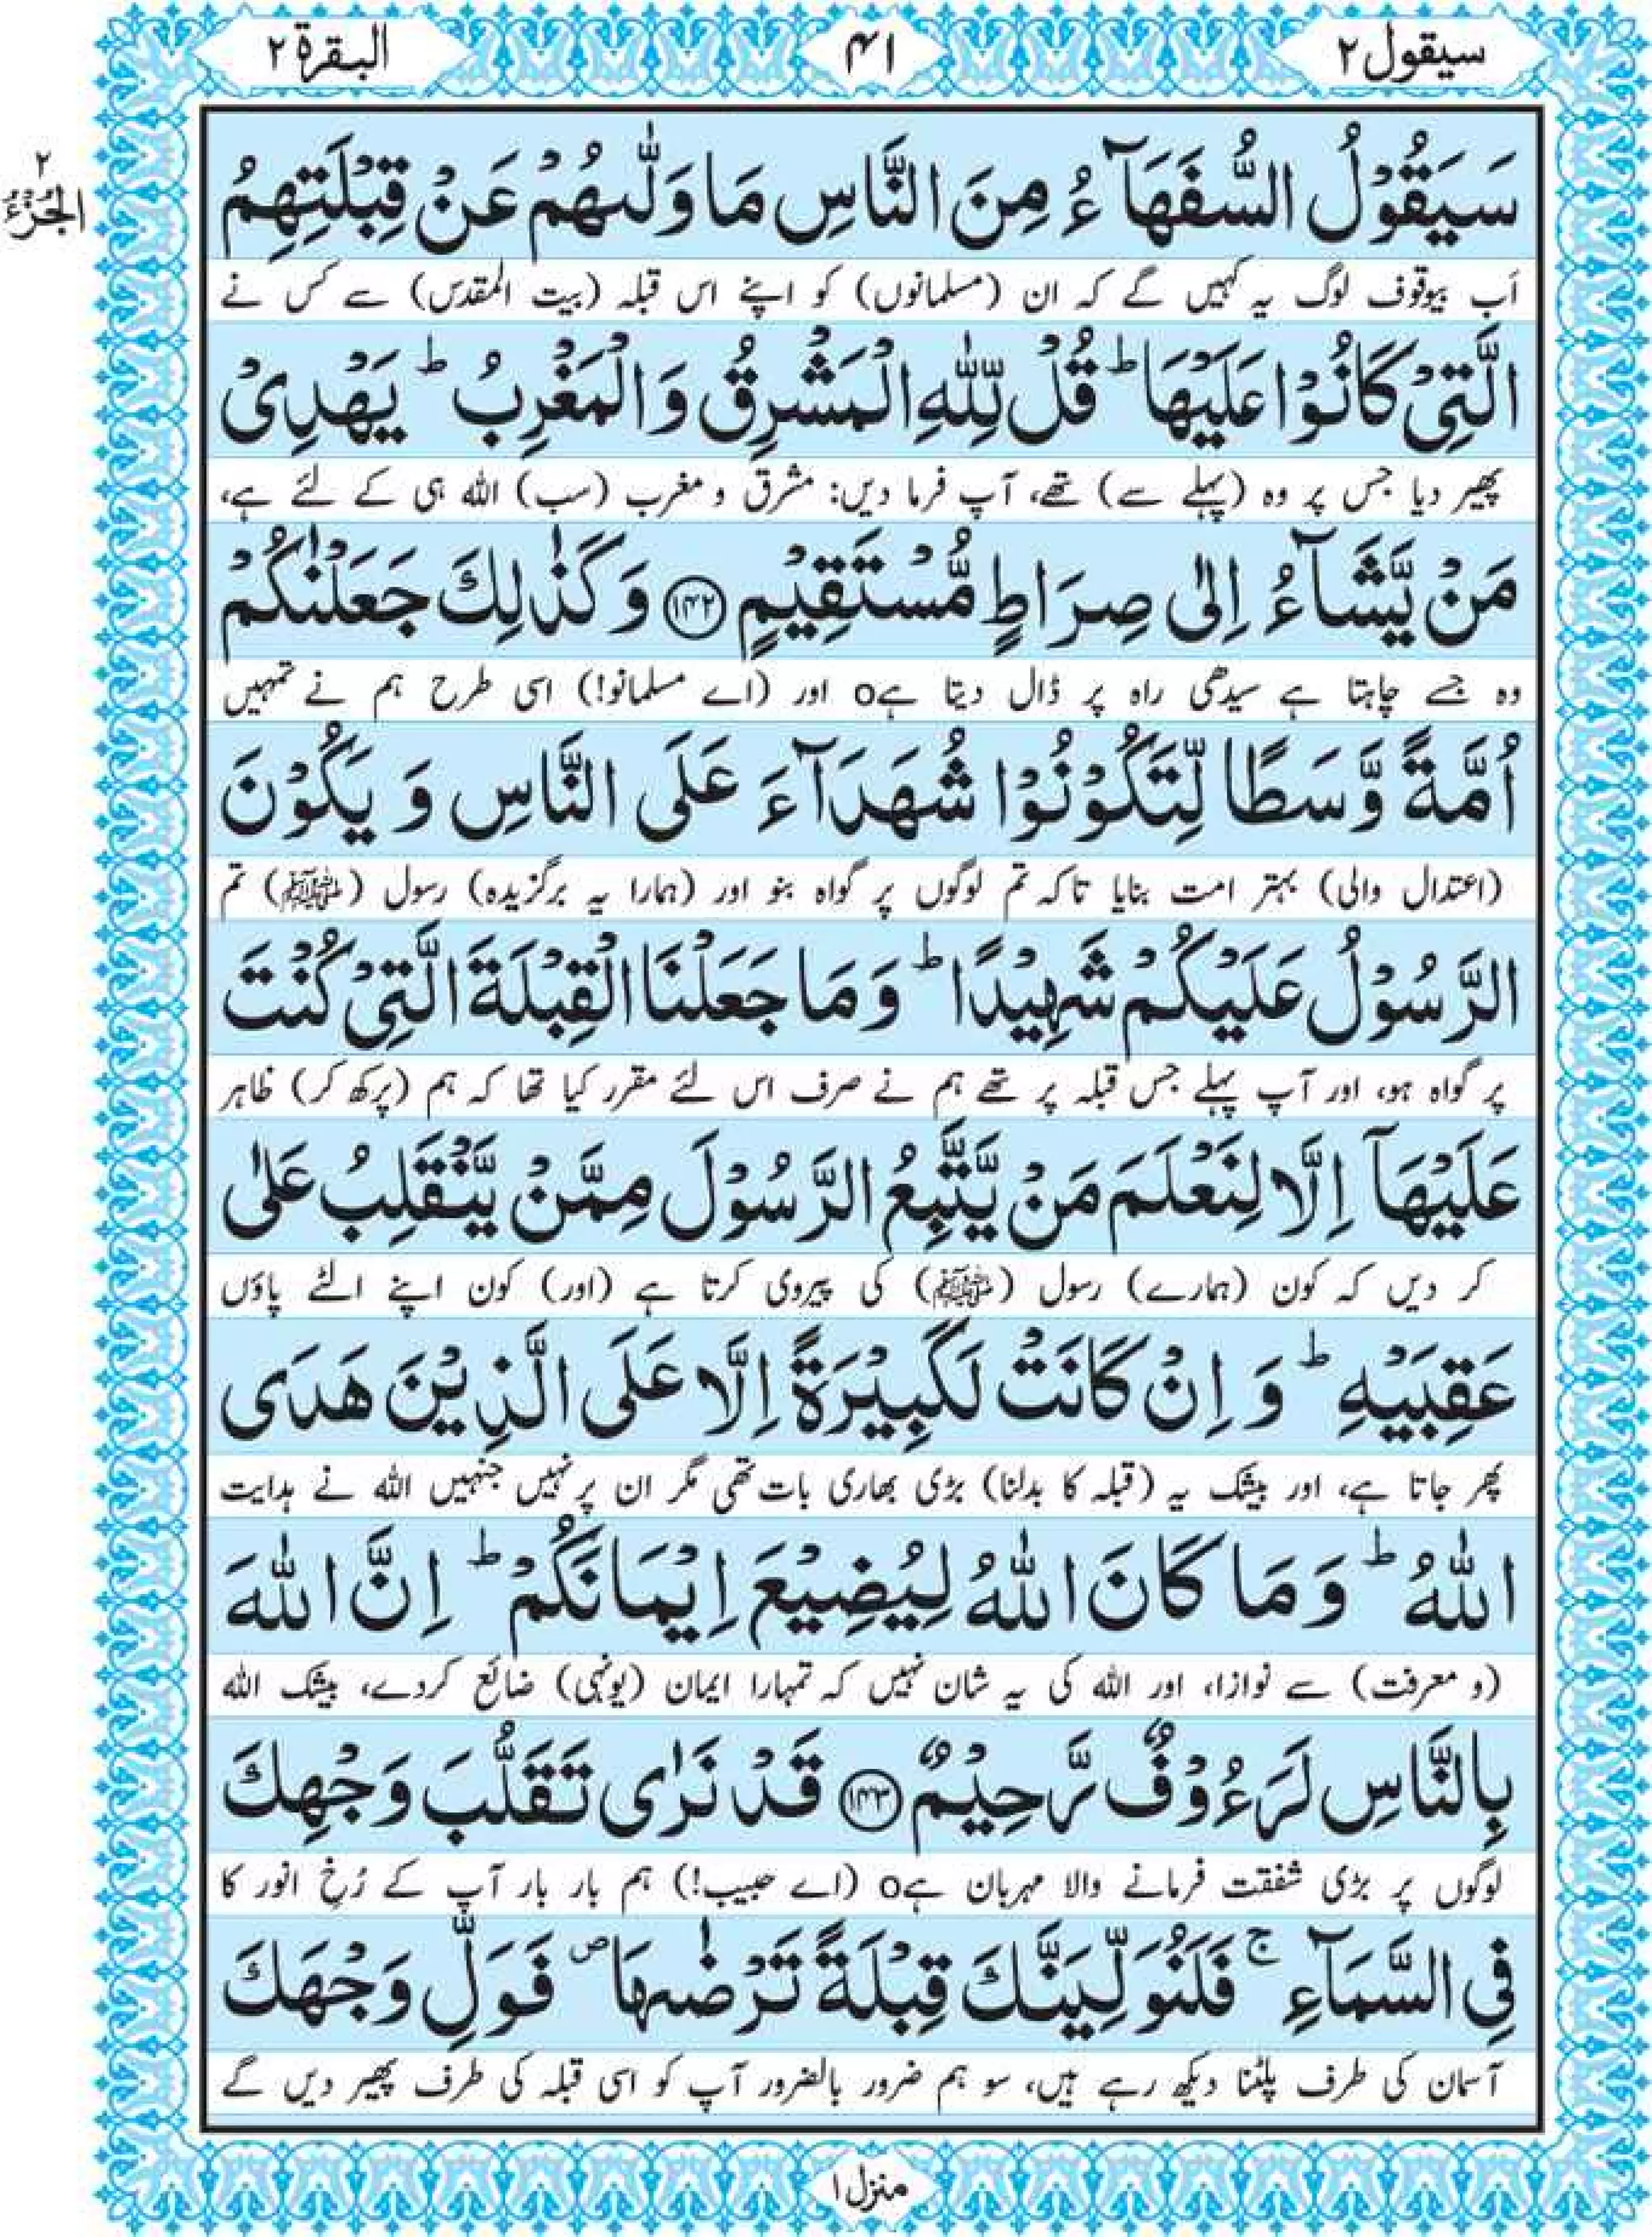 سیقول ۲
۴۱
البقرة ۲
۲
الجزء
سَيَقُوْلُ السُّفَهَآءُ مِنَ النَّاسِ مَا وَلّٰىهُمْ عَنْ قِبْلَتِهِمُ
اَب بیوقوف لوگ یہ کہیں گے کہ ان (مسلمانوں) کو اپنے اس قبلہ (بیت المقدس) سے کس نے
الَّتِيْ كَانُوْا عَلَيْهَا ؕ قُلْ لِّلّٰهِ الْمَشْرِقُ وَ الْمَغْرِبُ ؕ يَهْدِيْ
پھیر دیا جس پر وہ (پہلے سے) تھے، آپ فرما دیں: مشرق و مغرب (سب) اللہ ہی کے لئے ہے،
مَنْ يَّشَآءُ اِلٰى صِرَاطٍ مُّسْتَقِيْمٍ ۝۱۴۲ وَ كَذٰلِكَ جَعَلْنٰكُمْ
وہ جسے چاہتا ہے سیدھی راہ پر ڈال دیتا ہےo اور (اے مسلمانو!) اسی طرح ہم نے تمہیں
اُمَّةً وَّسَطًا لِّتَكُوْنُوْا شُهَدَآءَ عَلَى النَّاسِ وَ يَكُوْنَ
(اعتدال والی) بہتر امت بنایا تاکہ تم لوگوں پر گواہ بنو اور (ہمارا یہ برگزیدہ) رسول (ﷺ) تم
الرَّسُوْلُ عَلَيْكُمْ شَهِيْدًا ؕ وَ مَا جَعَلْنَا الْقِبْلَةَ الَّتِيْ كُنْتَ
پر گواہ ہو، اور آپ پہلے جس قبلہ پر تھے ہم نے صرف اس لئے مقرر کیا تھا کہ ہم (پرکھ کر) ظاہر
عَلَيْهَاۤ اِلَّا لِنَعْلَمَ مَنْ يَّتَّبِعُ الرَّسُوْلَ مِمَّنْ يَّنْقَلِبُ عَلٰى
کر دیں کہ کون (ہمارے) رسول (ﷺ) کی پیروی کرتا ہے (اور) کون اپنے الٹے پاؤں
عَقِبَيْهِ ؕ وَ اِنْ كَانَتْ لَكَبِيْرَةً اِلَّا عَلَى الَّذِيْنَ هَدَى
پھر جاتا ہے، اور بیشک یہ (قبلہ کا بدلنا) بڑی بھاری بات تھی مگر ان پر نہیں جنہیں اللہ نے ہدایت
اللّٰهُ ؕ وَ مَا كَانَ اللّٰهُ لِيُضِيْعَ اِيْمَانَكُمْ ؕ اِنَّ اللّٰهَ
(و معرفت) سے نوازا، اور اللہ کی یہ شان نہیں کہ تمہارا ایمان (یونہی) ضائع کردے، بیشک اللہ
بِالنَّاسِ لَرَءُوْفٌ رَّحِيْمٌ ۝۱۴۳ قَدْ نَرٰى تَقَلُّبَ وَجْهِكَ
لوگوں پر بڑی شفقت فرمانے والا مہربان ہےo (اے حبیب!) ہم بار بار آپ کے رُخِ انور کا
فِي السَّمَآءِ ۚ فَلَنُوَلِّيَنَّكَ قِبْلَةً تَرْضٰىهَا ۪ فَوَلِّ وَجْهَكَ
آسمان کی طرف پلٹنا دیکھ رہے ہیں، سو ہم ضرور بالضرور آپ کو اسی قبلہ کی طرف پھیر دیں گے
منزل ۱